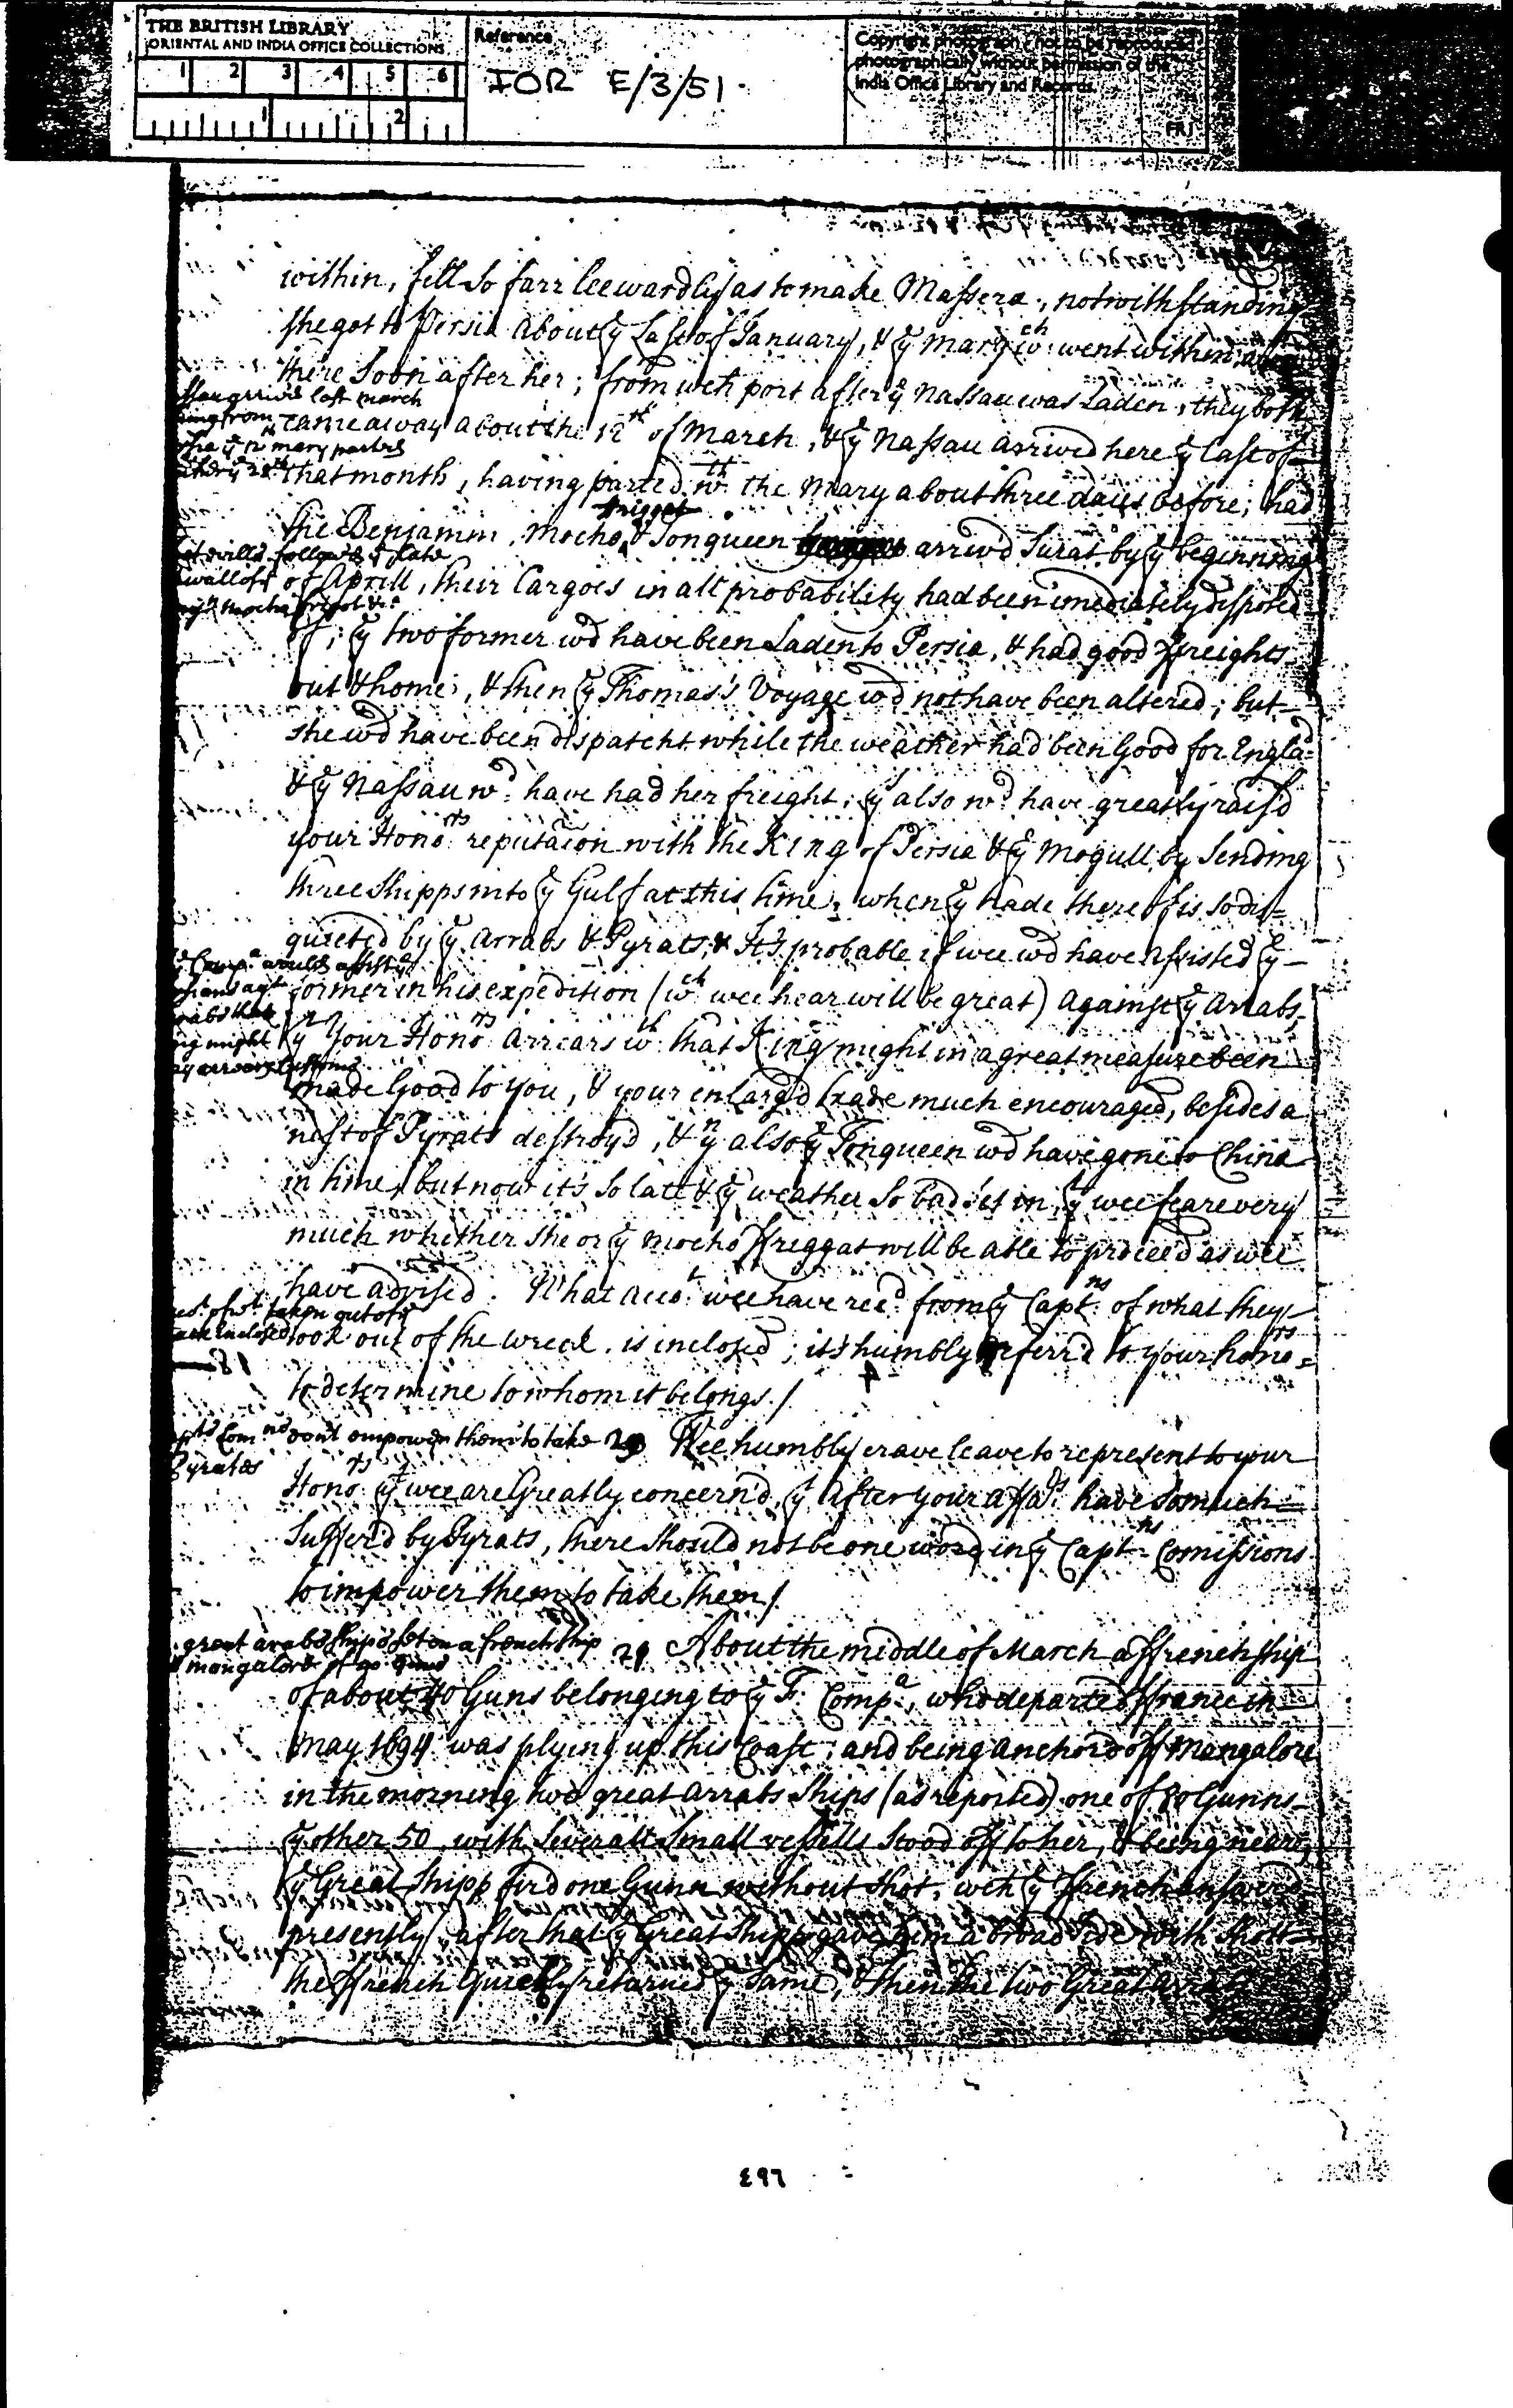 THE BRITISH LIBRARY
ORIENTAL AND INDIA OFFICE COLLECTIONS
1 2 3 4 5 6
1 2
Reference
IOR E/3/51
Copyright photograph - not to be reproduced
photographically without permission of the
India Office Library and Records.
within, fell so farr leewardly as to make Massera, notwithstanding
she got to Persia about ye Last of January, & ye Mary wch went within
there soon after her; from wch port after ye Nassau was Laden, they both
arriv'd last march
from
came away about the 12th of March, & ye Nassau arrived here ye last of
ye mary parted
that month, having parted wth the Mary about three daies before; had
friggat
the Benjamin, Mocho & Tonqueen arrived Surat by ye beginning
follow'd ye late
of Aprill, their Cargoes in all probability had been imediately disposed
Mocha frigot &c
of; ye two former wd have been Laden to Persia, & had good ffreights
out & home, & then ye Thomas's Voyage wd not have been altered; but
she wd have been dispatcht while the weather had been Good for Englad
& ye Nassau wd have had her freight; yt also wd have greatly rais'd
your Honors reputacion with the King of Persia & ye Mogull by Sending
three Shipps into ye Gulf at this time, when ye trade thereof is so dis=
quieted by ye Arrabs & Pyrats, & It's probable if wee wd have assisted ye
Compa would assist ye
agt
former in his expedition (wch wee hear will be great) Against ye Arrabs,
might
yn Your Honors Arriars wth that King might in a great measure been
made Good to you, & your enlarg'd trade much encouraged, besides a
nest of Pyrats destroy'd, & yn also ye Tonqueen wd have gone to China
in time, but now it's so late & ye weather so bad set in, yt wee feare very
much whether she or ye Mocho ffreggat will be able to proceed as wee
have advised. What accot wee have recd from ye Captns of what they
taken out of ye
inclosed
took out of the wreck is inclosed; it's humbly referr'd to your honors
81
to determine to whom it belongs /
Comns don't empower them to take
Pyrates
Wee humbly crave leave to represent to your
Honors yt wee are Greatly concern'd, yt After your affairs have so much
Suffer'd by Pyrats, there should not be one word in ye Captns Comissions
to impower them to take them /
great arabs ships set on a french ship
mangalore
29 About the middle of March a ffrench ship
of about 40 Guns belonging to ye F. Compa, who departed ffrance in
May 1694 was plying up this Coast; and being anchor'd off Mangalore
in the morning two great Arrabs Ships (as reported) one of 80 Gunns
ye other 50, with severall small vessells stood off to her, & being neare,
ye Great Shipp fir'd one Gunn without shot, wch ye ffrench answer'd
presently, after that ye Great Shipp gave him a broad side with shott
the ffrench Quickly return'd ye same, & then the two Great
497